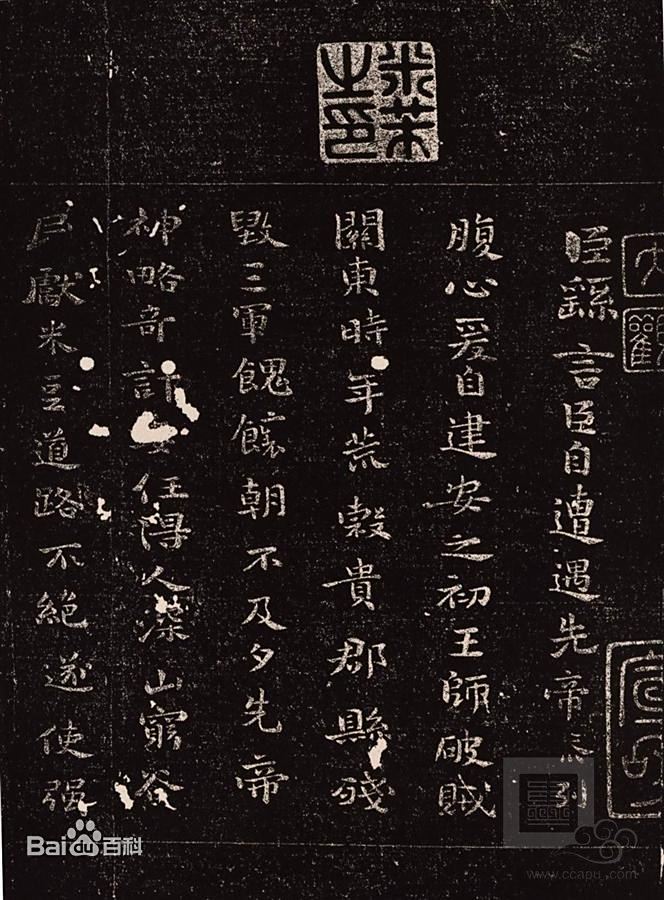 米芾之印
臣繇言臣自遭遇先帝忝列
腹心爰自建安之初王師破賊
關東時年荒穀貴郡縣殘
毀三軍餽饟朝不及夕先帝
神略奇計委任得人深山窮谷
民獻米豆道路不絕遂使强
Bai百科
www.ccapu.com